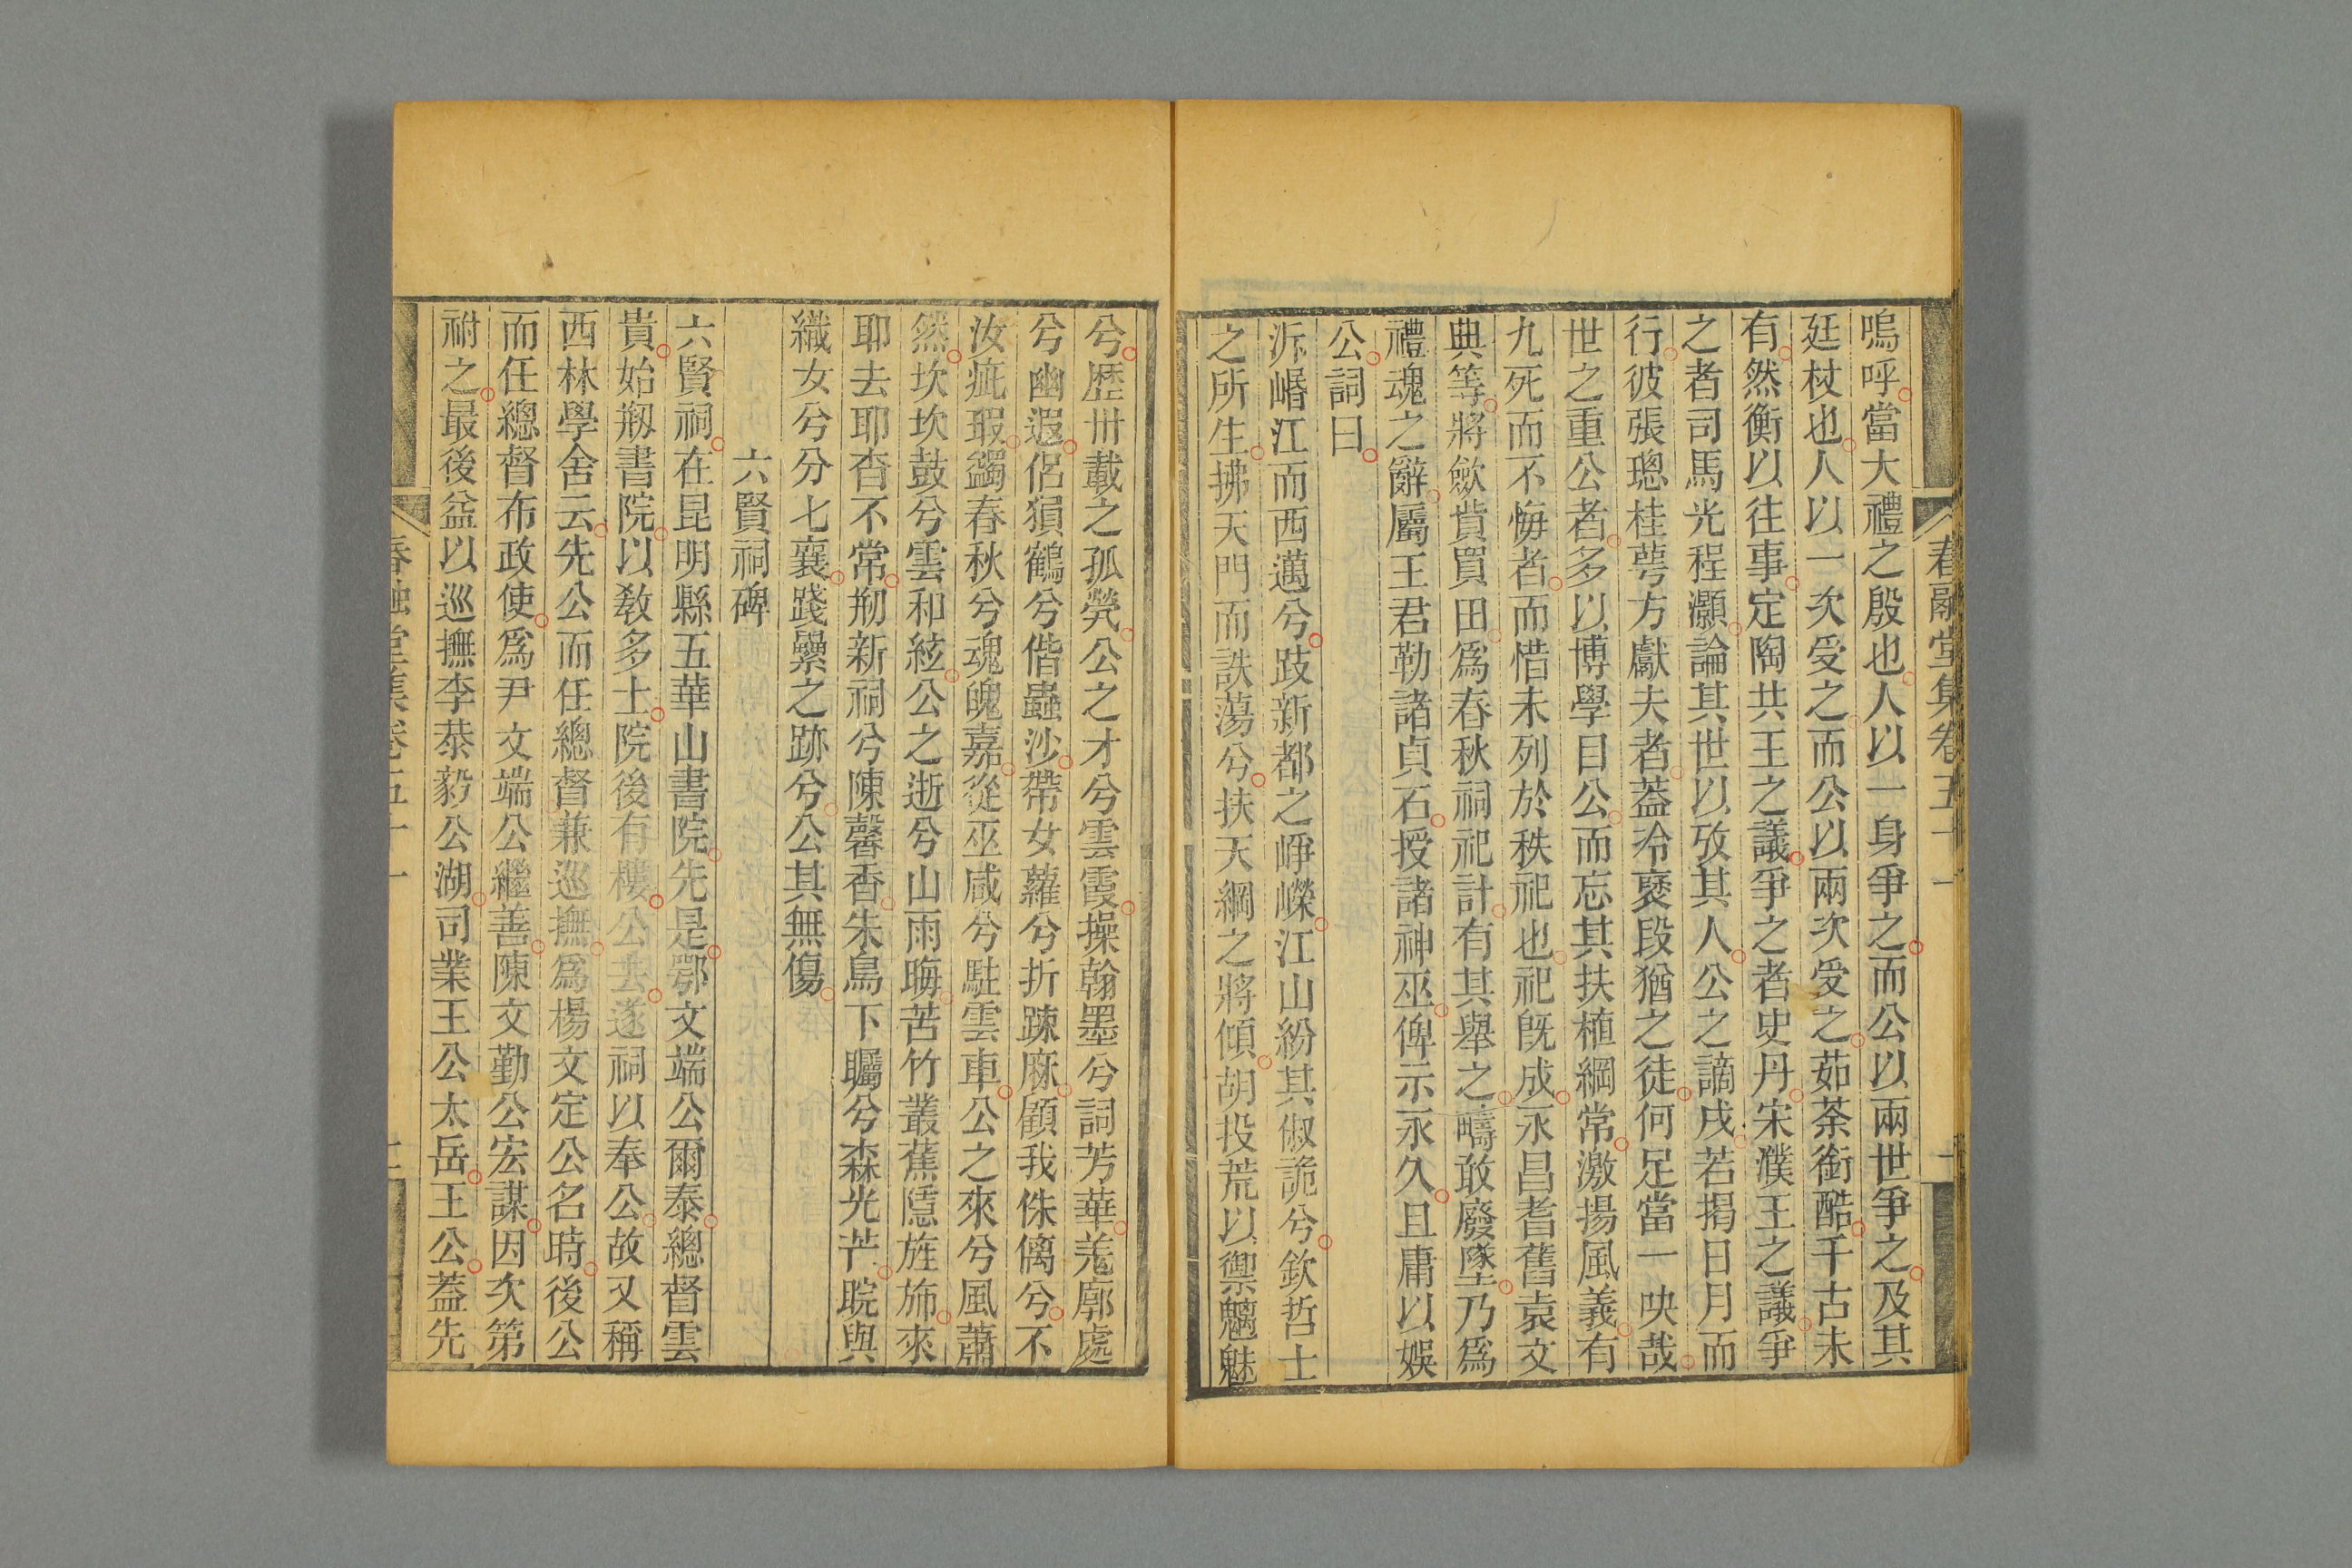 春融堂集卷五十一
嗚呼當大禮之殷也人以一身爭之而公以兩世爭之及其
廷杖也人以一次受之而公以兩次受之茹荼銜酷千古未
有然衡以往事定陶共王之議爭之者史丹宋濮王之議爭
之者司馬光程灝論其世以攷其人公之謫戍若揭日月而
行彼張璁桂萼方獻夫者蓋冷褎段猶之徒何足當一吷哉
世之重公者多以博學目公而忘其扶植綱常激揚風義有
九死而不悔者而惜未列於秩祀也祀旣成永昌耆舊袁文
典等將歛貲買田爲春秋祠祀計有其舉之疇敢廢墜乃爲
禮魂之辭屬王君勒諸貞石授諸神巫俾示永久且庸以娛
公詞曰
泝㟭江而西邁兮跂新都之崢嶸江山紛其俶詭兮欽哲士
之所生拂天門而詄蕩兮扶天綱之將傾胡投荒以禦魑魅
兮歷卅載之孤煢公之才兮雲霞操翰墨兮詞芳華羗廓處
兮幽遐侶狽鶴兮偕蟲沙帶女蘿兮折疎麻顧我侏㒧兮不
汝疵瑕蠲春秋兮魂魄嘉從巫咸兮駐雲車公之來兮風蕭
然坎坎鼓兮雲和絃公之逝兮山雨晦苦竹叢蕉隱旌斾來
耶去耶杳不常剏新祠兮陳馨香朱鳥下矚兮森光芒睆與
織女兮分七襄踐纍之跡兮公其無傷
六賢祠碑
六賢祠在昆明縣五華山書院先是鄂文端公爾泰總督雲
貴始剏書院以敎多士院後有樓公去遂祠以奉公故又稱
西林學舍云先公而任總督兼巡撫爲楊文定公名時後公
而任總督布政使爲尹文端公繼善陳文勤公宏謀因次第
祔之最後益以巡撫李恭毅公湖司業王公太岳王公蓋先
春融堂集卷五十一